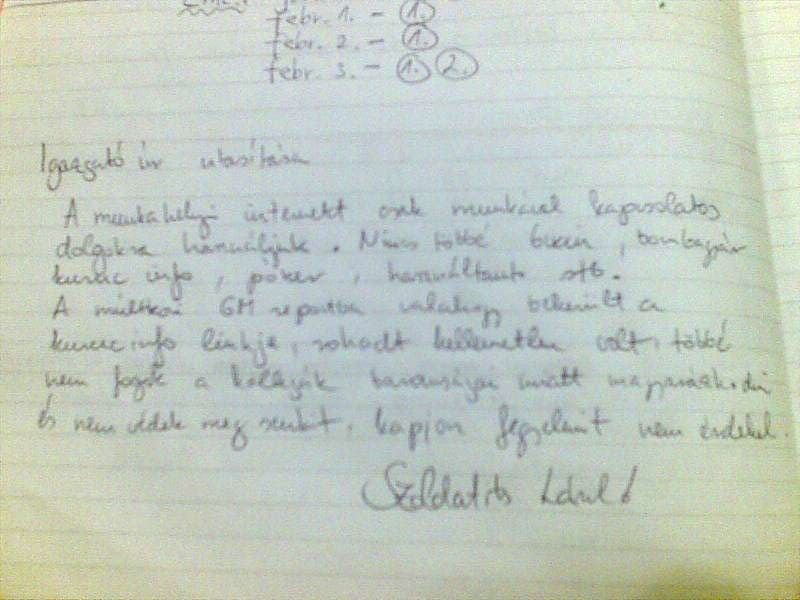 febr. 1. – 1.
febr. 2. – 1.
febr. 3. – 1. 2.
Igazgató úr utasítása
A munkahelyi internetet csak munkával kapcsolatos
dolgokra használjuk. Nincs többé, bombagyár
kuruc info, póker, használtautó stb.
A múltkori GM reportba valahogy bekerült a
kuruc info linkje, rohadt kellemetlen volt, többé
nem fogok a kollégák baromságai miatt magyarázkodni
és nem védek meg senkit, kapjon fegyelmit nem érdekel.